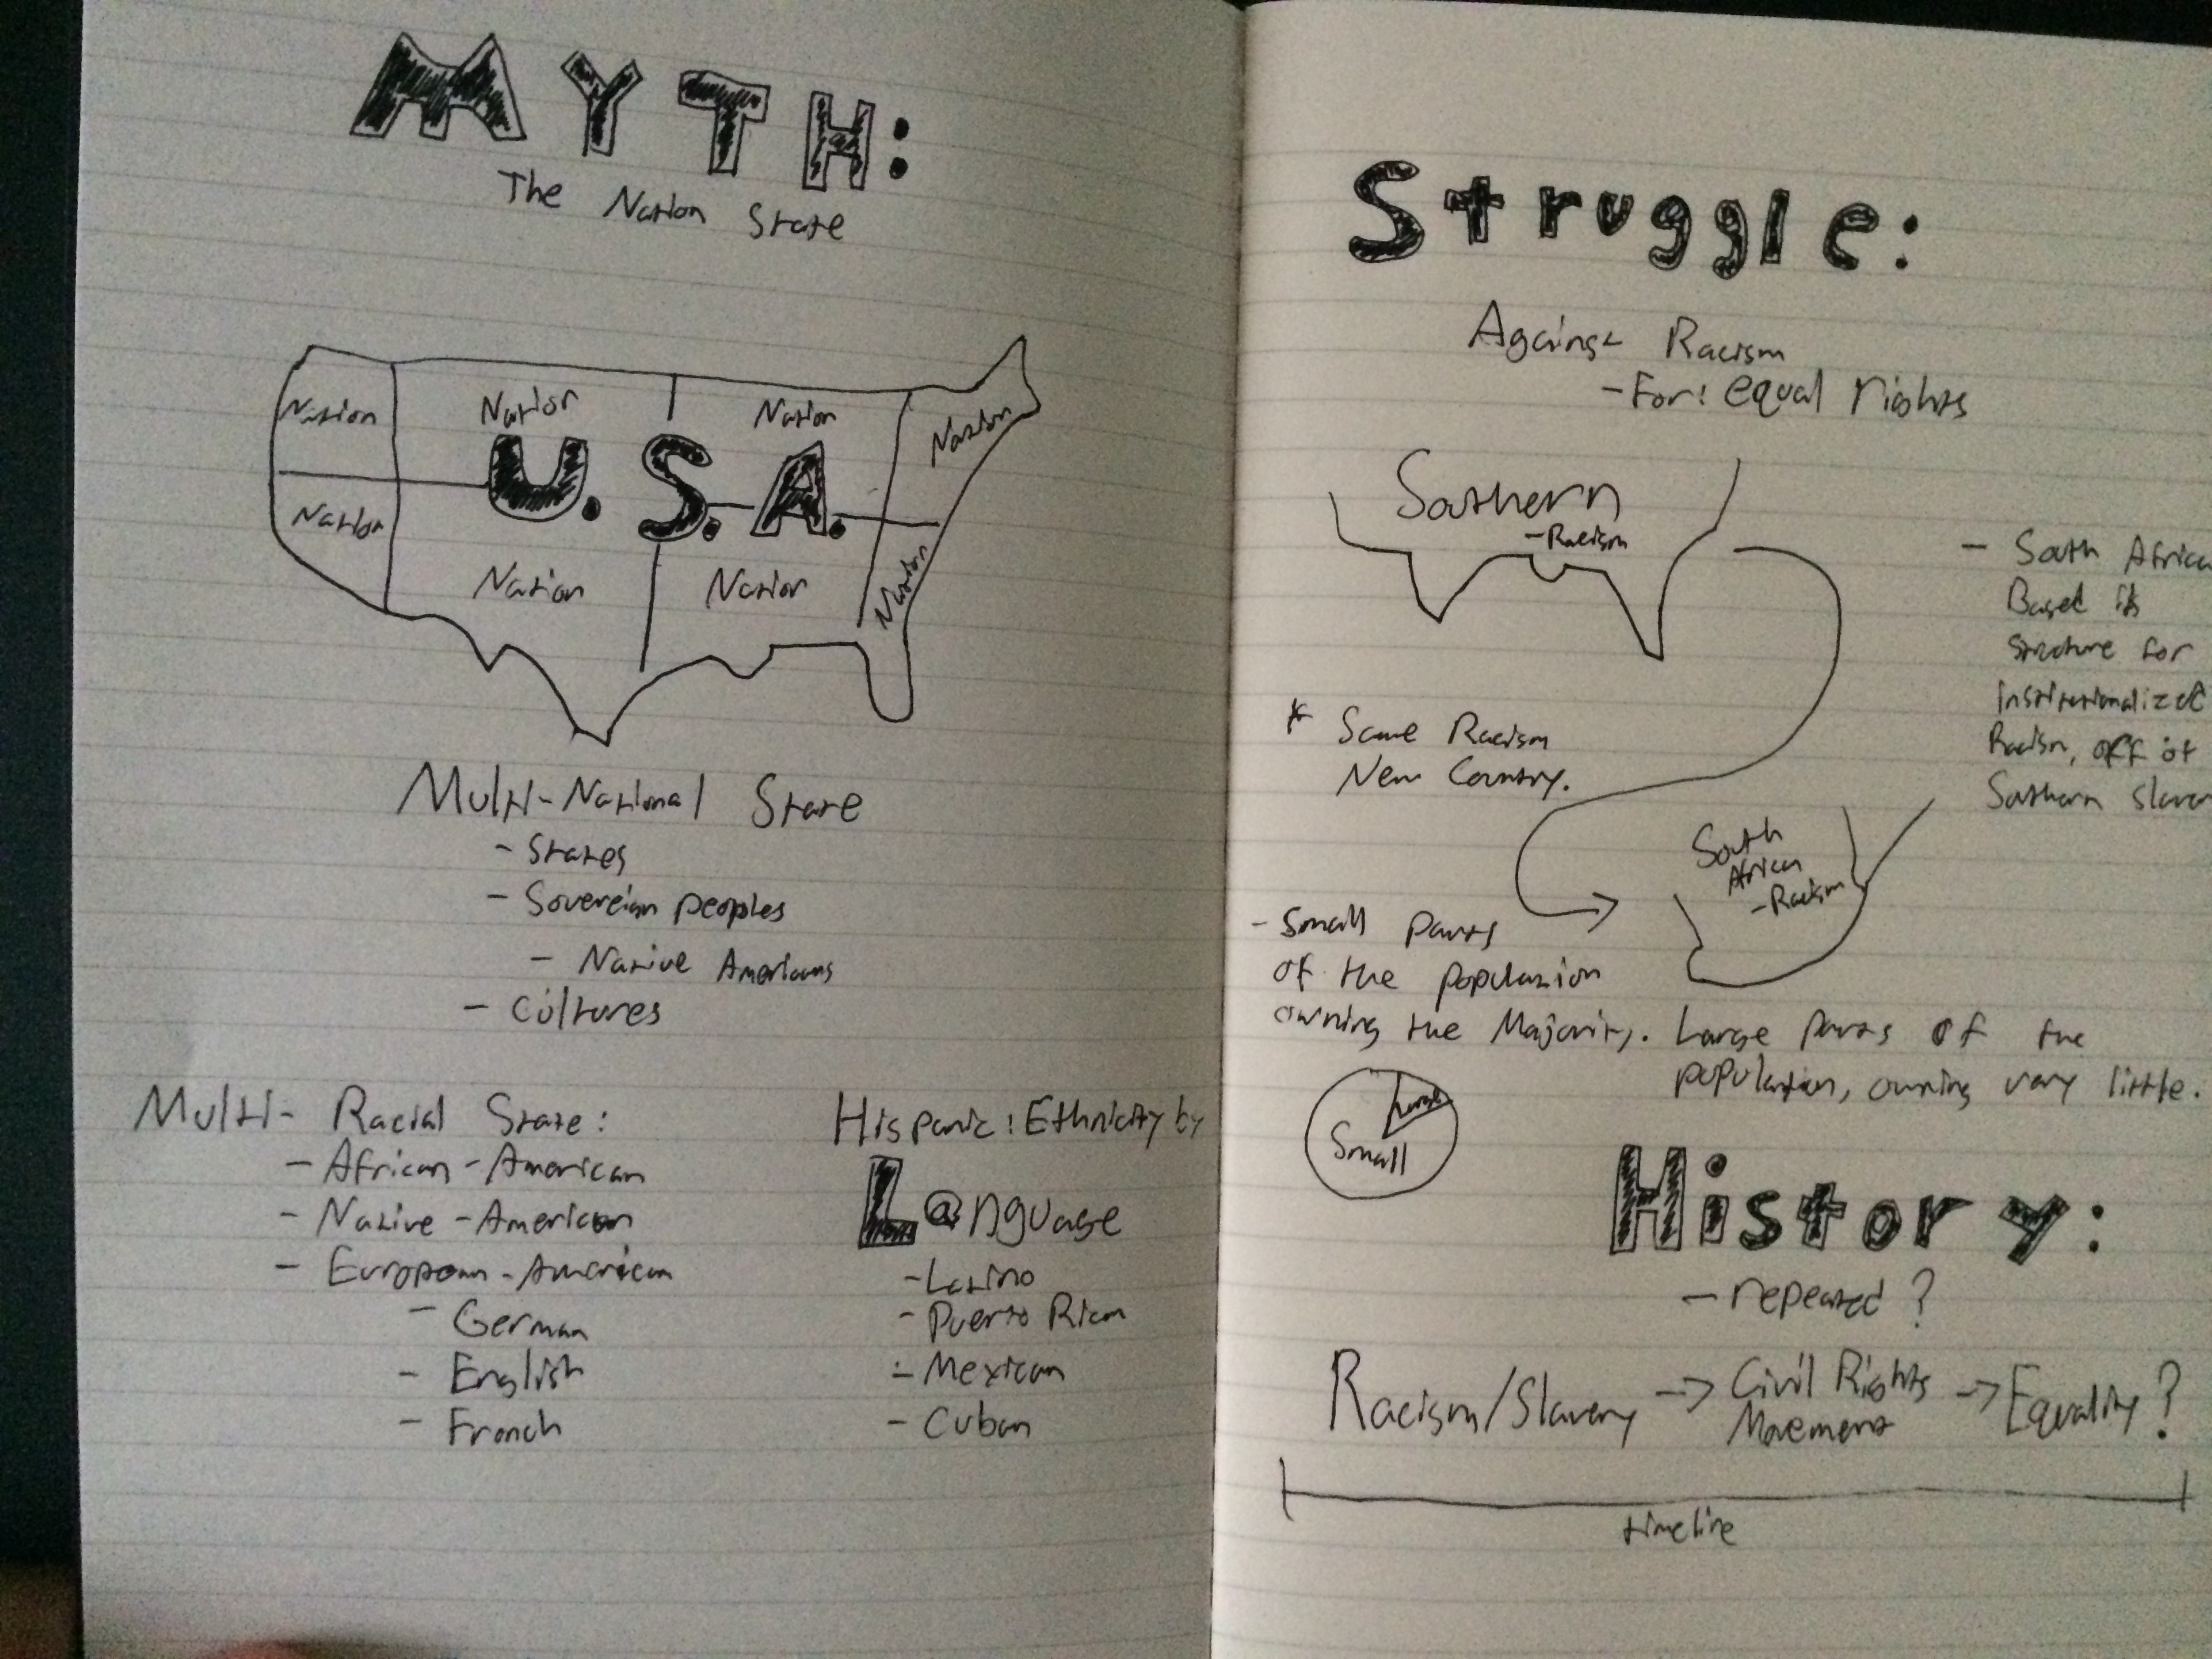 MYTH:
The Nation State
Nation
Nation
Nation
Nation
Nation
Nation
Nation
Nation
U.S.A.
Multi-National State
- States
- Sovereign peoples
- Native Americans
- Cultures
Multi-Racial State:
- African-American
- Native-American
- European-American
- German
- English
- French
Hispanic: Ethnicity by
Language
- Latino
- Puerto Rican
- Mexican
- Cuban
Struggle:
Against Racism
- For: equal rights
Southern
- Racism
* Same Racism
New Country.
- South Africa
Based its
structure for
institutionalized
Racism, off of
Southern slavery
South
African
- Racism
- Small parts
of the population
owning the Majority. Large parts of the
population, owning very little.
Large
Small
History:
- repeated?
Racism/Slavery → Civil Rights → Equality?
Movement
timeline